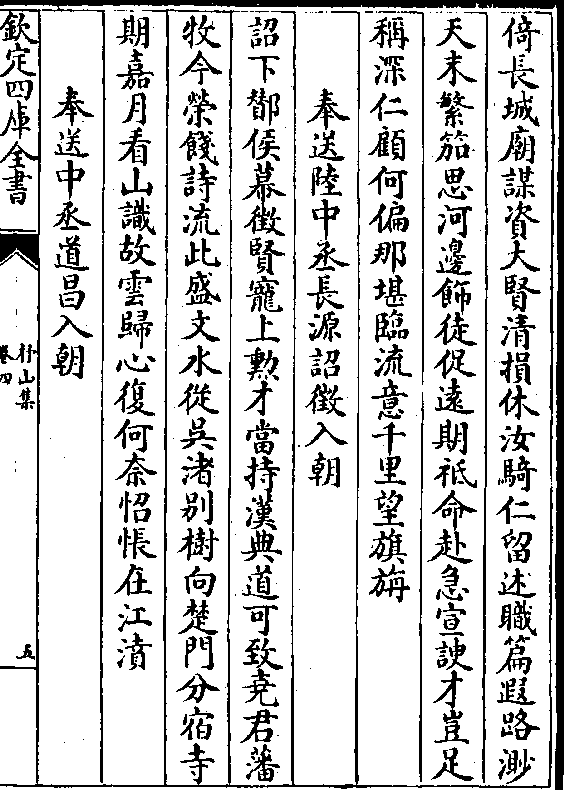 倚長城廟謀資大賢清損休汝騎仁留述職篇遐路渺
天末繁笳思河邊飾徒促遠期祗命赴急宣諛才豈足
稱深仁顧何偏那堪臨流意千里望旗旃
奉送陸中丞長源詔徵入朝
詔下鄼侯幕徵賢寵上勲才當持漢典道可致堯君藩
牧今榮餞詩流此盛文水從吳渚别樹向楚門分宿寺
期嘉月看山識故雲歸心復何奈怊悵在江濆
奉送中丞道昌入朝
欽定四庫全書
杼山集
卷四
五